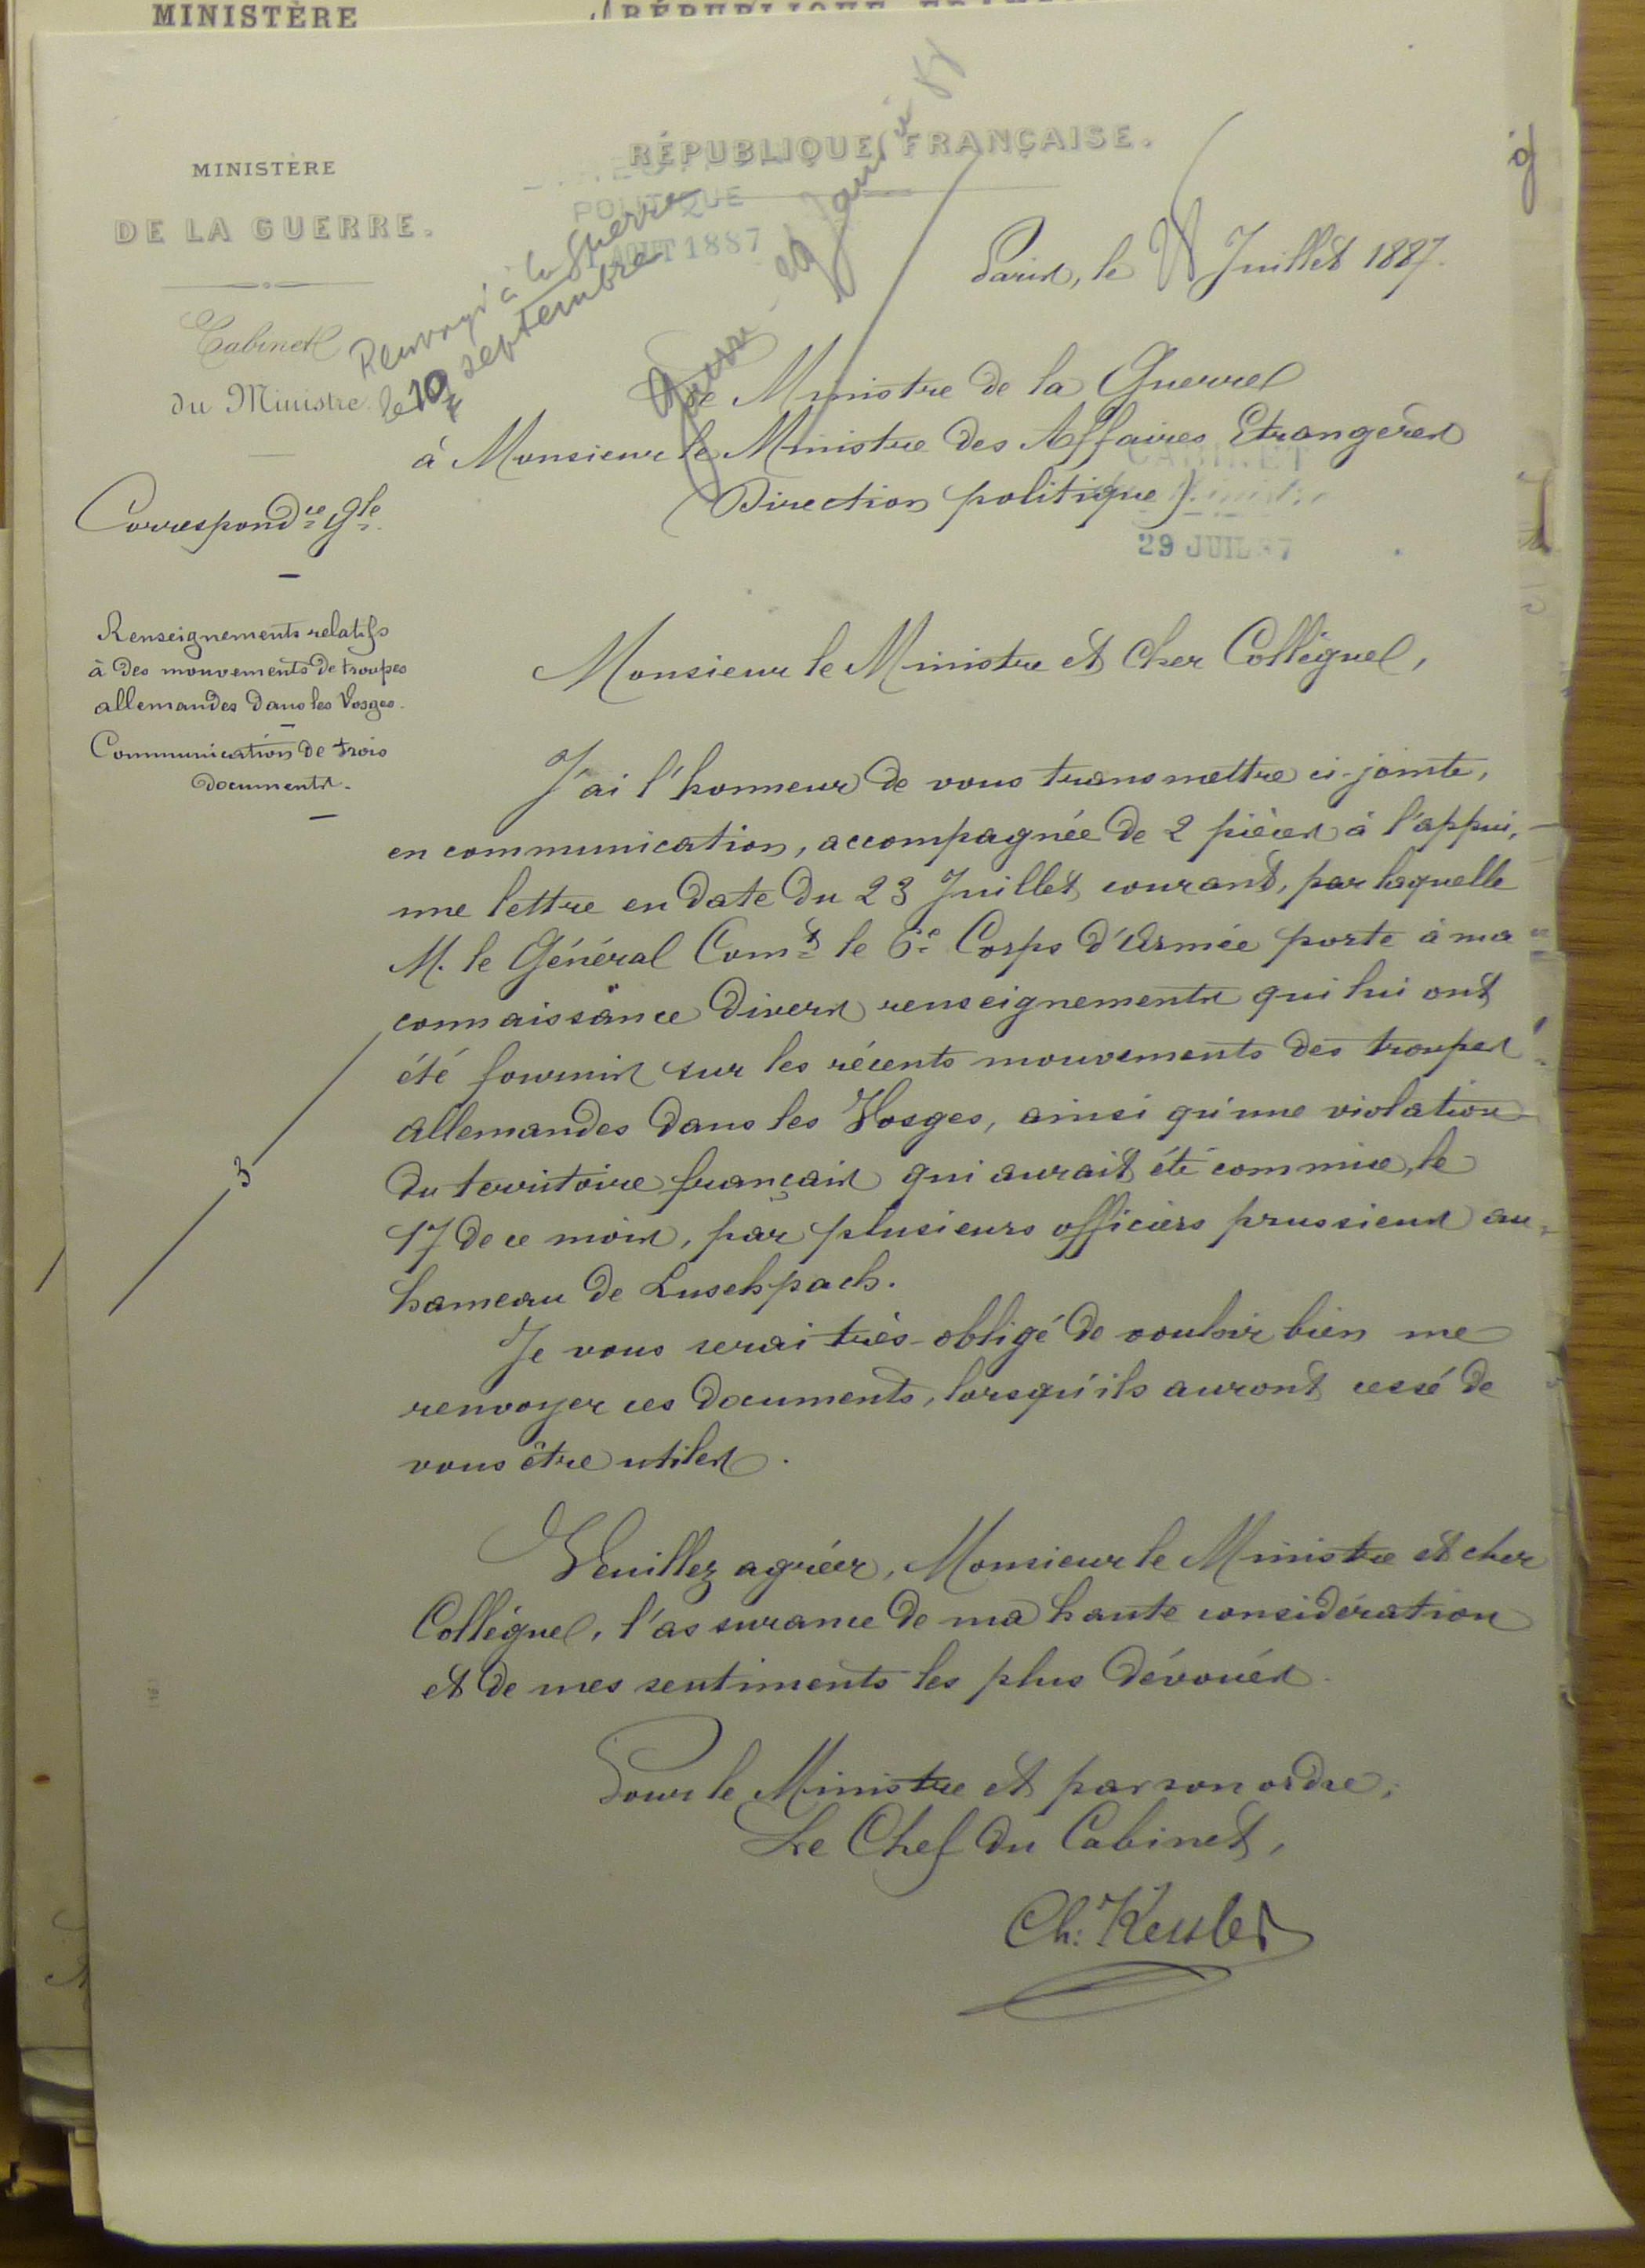 MINISTÈRE
MINISTÈRE
DE LA GUERRE.
Cabinet
du Ministre.
Correspondce gle
Renseignements relatifs
à des mouvements de troupes
allemandes dans les Vosges.
Communication de trois
documents.
RÉPUBLIQUE FRANÇAISE.
POLITIQUE
AOUT 1887
Renvoyé à la Guerre
le 10 septembre
Paris, le 28 Juillet 1887.
Le Ministre de la Guerre
à Monsieur le Ministre des Affaires Etrangères
(Direction politique).
CABINET
29 JUIL 87
Monsieur le Ministre et cher Collègue,
J'ai l'honneur de vous transmettre ci-jointe,
en communication, accompagnée de 2 pièces à l'appui,
une lettre en date du 23 Juillet courant, par laquelle
M. le Général Comt le 6e Corps d'Armée porte à ma
connaissance divers renseignements qui lui ont
été fournis sur les récents mouvements des troupes
allemandes dans les Vosges, ainsi qu'une violation
du territoire français qui aurait été commise, le
17 de ce mois, par plusieurs officiers prussiens au
hameau de Luschpach.
3
Je vous serai très obligé de vouloir bien me
renvoyer ces documents, lorsqu'ils auront cessé de
vous être utiles.
Veuillez agréer, Monsieur le Ministre et cher
Collègue, l'assurance de ma haute considération
et de mes sentiments les plus dévoués.
Pour le Ministre et par son ordre,
Le Chef du Cabinet,
Ch. Kessler